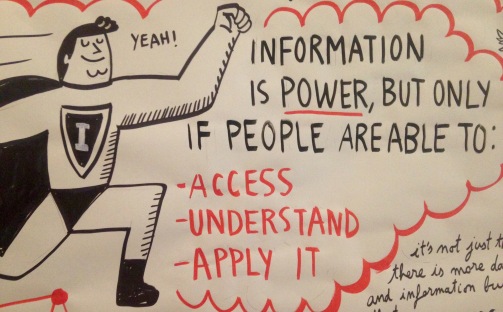 YEAH!
INFORMATION
IS POWER, BUT ONLY
IF PEOPLE ARE ABLE TO:
I
-ACCESS
-UNDERSTAND
-APPLY IT
it's not just
there is more
and information